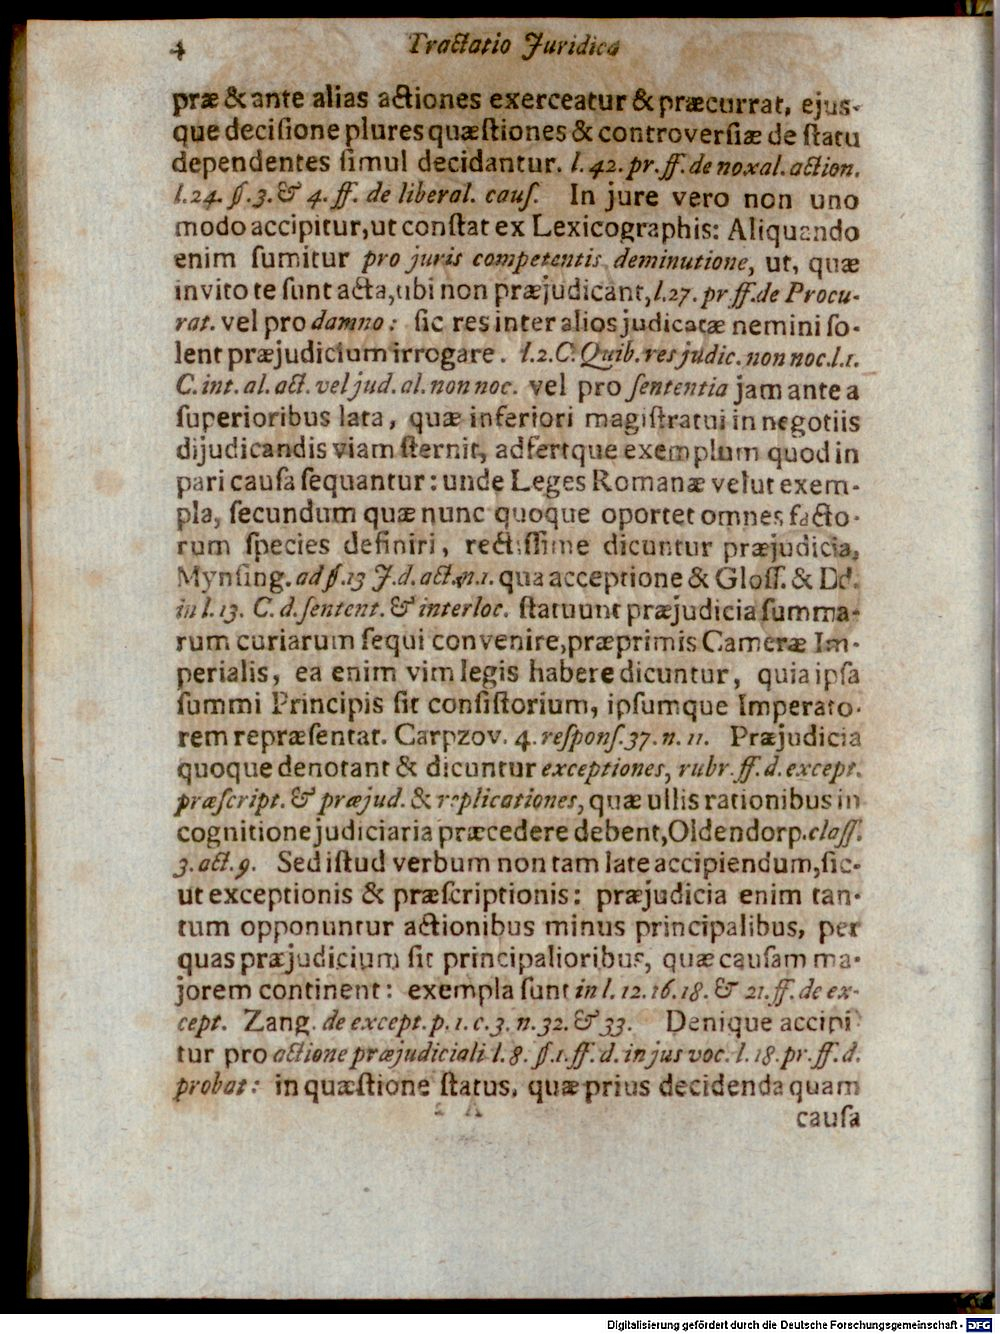 4 Tractatio Juridica
præ & ante alias actiones exerceatur & præcurrat, ejus-
que decisione plures quæstiones & controversiæ de statu
dependentes simul decidantur. l. 42. pr. ff. de noxal. action.
l. 24. §. 3. & 4. ff. de liberal. caus. In jure vero non uno
modo accipitur, ut constat ex Lexicographis: Aliquando
enim sumitur pro juris competentis deminutione, ut, quæ
invito te sunt acta, ubi non præjudicant, l. 27. pr ff. de Procu-
rat. vel pro damno: sic res inter alios judicatæ nemini so-
lent præjudicium irrogare. l. 2. C. Quib. res judic. non noc. l. 1.
C. int. al. act. vel jud. al. non noc. vel pro sententia jam ante a
superioribus lata, quæ inferiori magistratui in negotiis
dijudicandis viam sternit, adfertque exemplum quod in
pari causa sequantur: unde Leges Romanæ velut exem-
pla, secundum quæ nunc quoque oportet omnes facto-
rum species definiri, rectissime dicuntur præjudicia,
Mynsing. ad §. 13 J. d. act. n. 1. qua acceptione & Gloss. & Dd.
in l. 13. C. d. sentent. & interloc. statuunt præjudicia summa-
rum curiarum sequi convenire, præprimis Cameræ Im-
perialis, ea enim vim legis habere dicuntur, quia ipsa
summi Principis sit consistorium, ipsumque Imperato-
rem repræsentat. Carpzov. 4. respons. 37. n. 11. Præjudicia
quoque denotant & dicuntur exceptiones, rubr. ff. d. except.
præscript. & præjud. & replicationes, quæ ullis rationibus in
cognitione judiciaria præcedere debent, Oldendorp. class.
3. act. 9. Sed istud verbum non tam late accipiendum, sic-
ut exceptionis & præscriptionis: præjudicia enim tan-
tum opponuntur actionibus minus principalibus, per
quas præjudicium sit principalioribus, quæ causam ma-
jorem continent: exempla sunt in l. 12. 16. 18. & 21. ff. de ex-
cept. Zang. de except. p. 1. c. 3. n. 32. & 33. Denique accipi
tur pro actione præjudiciali l. 8. §. 1. ff. d. in jus voc. l. 18. pr. ff. d.
probat: in quæstione status, quæ prius decidenda quam
causa
Digitalisierung gefördert durch die Deutsche Forschungsgemeinschaft - DFG